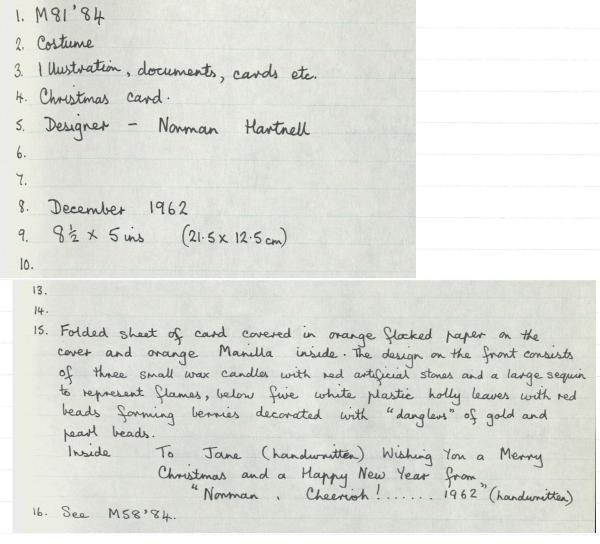 1. M81'84
2. Costume
3. Illustration, documents, cards etc.
4. Christmas card.
5. Designer - Norman Hartnell
6.
7.
8. December 1962
9. 8½ x 5 ins (21.5 x 12.5 cm)
10.
13.
14.
15. Folded sheet of card covered in orange flocked paper on the
cover and orange Manilla inside. The design on the front consists
of three small wax candles with red artificial stones and a large sequin
to represent flames, below five white plastic holly leaves with red
beads forming berries decorated with "danglers" of gold and
pearl beads.
Inside To Jane (handwritten) Wishing You a Merry
Christmas and a Happy New Year from
"Norman . Cheerioh!...... 1962" (handwritten)
16. See M58'84.